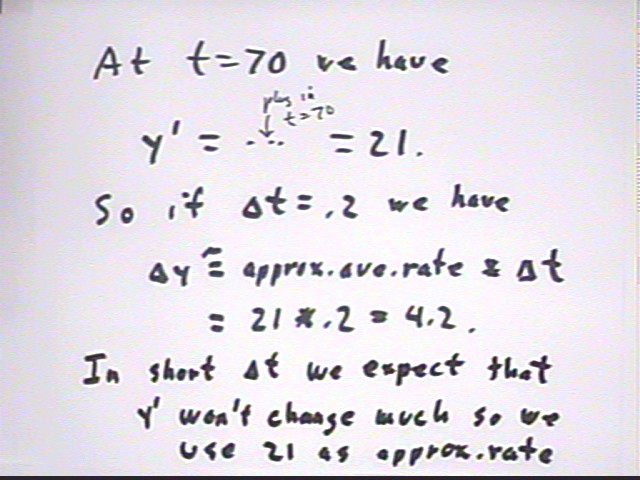 At t=70 we have
plug in
t=70
y' = ... = 21.
So if Δt = .2 we have
Δy ≅ approx. ave. rate * Δt
= 21 * .2 = 4.2.
In short Δt we expect that
y' won't change much so we
use 21 as approx. rate